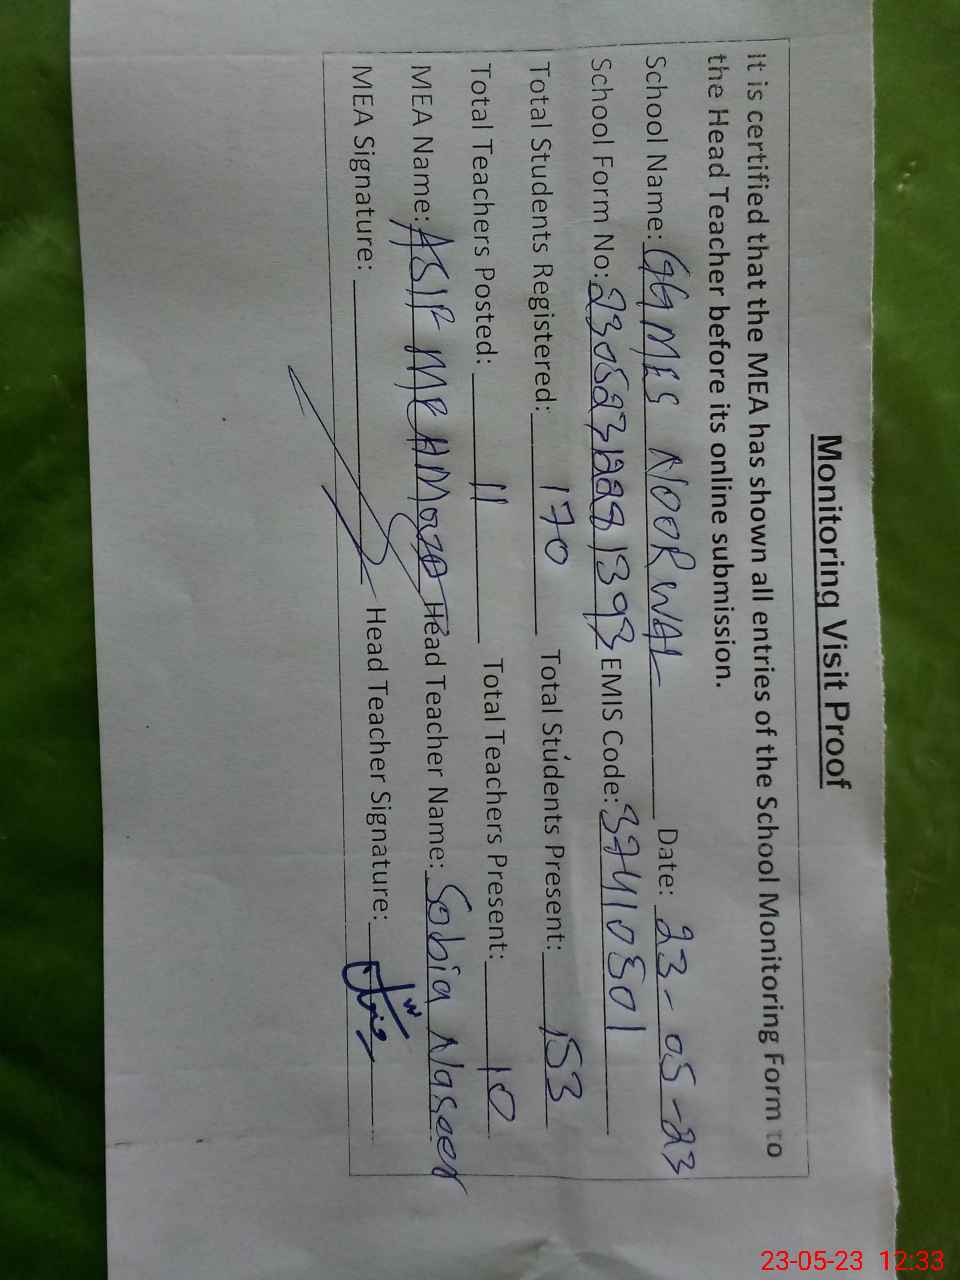 Monitoring Visit Proof
It is certified that the MEA has shown all entries of the School Monitoring Form to
the Head Teacher before its online submission.
School Name: GGMES NOORWAL Date: 23-05-23
School Form No: EMIS Code: 37410501
Total Students Registered: 170 Total Students Present: 153
Total Teachers Posted: 11 Total Teachers Present: 10
MEA Name: ASIF MEHMOOD Head Teacher Name: Sobia Naseer
MEA Signature: Head Teacher Signature:
23-05-23 12:33